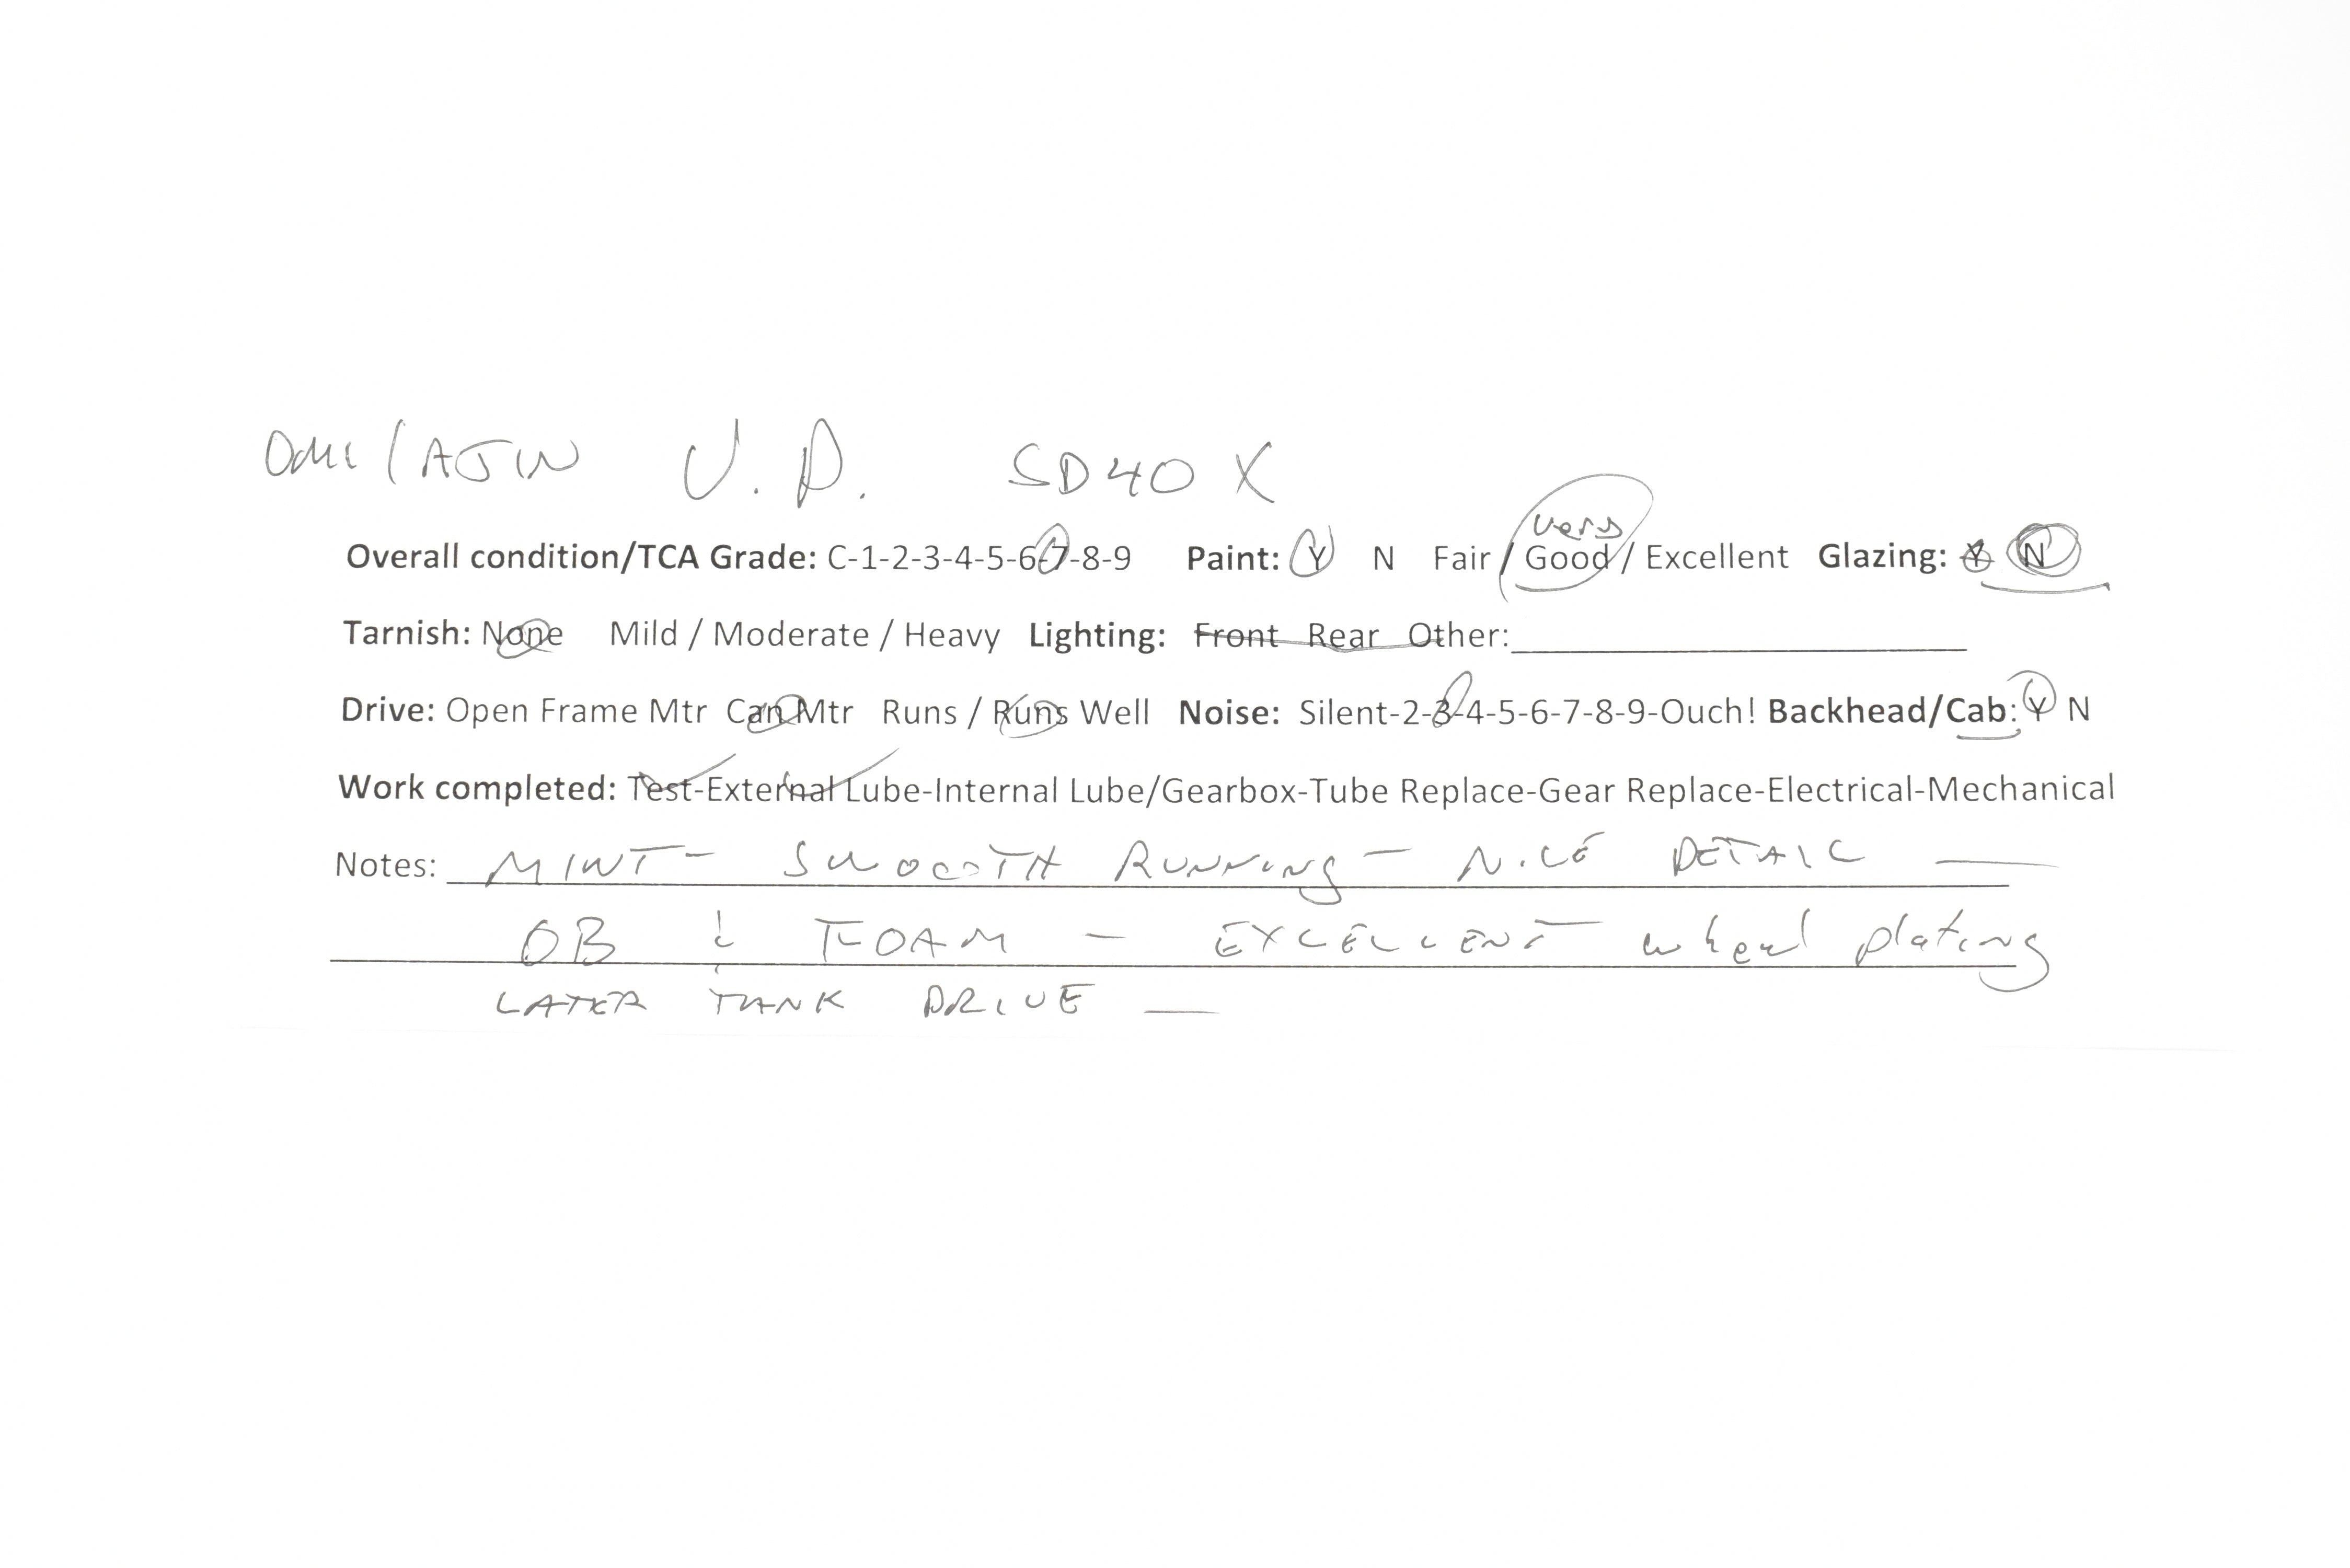 OMI/AJIN U.P. SD40 X
very
Overall condition/TCA Grade: C-1-2-3-4-5-6-7-8-9 Paint: Y N Fair / Good / Excellent Glazing: Y N
Tarnish: None Mild / Moderate / Heavy Lighting: Front Rear Other:
Drive: Open Frame Mtr Can Mtr Runs / Runs Well Noise: Silent-2-3-4-5-6-7-8-9-Ouch! Backhead/Cab: Y N
Work completed: Test-External Lube-Internal Lube/Gearbox-Tube Replace-Gear Replace-Electrical-Mechanical
Notes: MINT- SMOOTH RUNNING - NICE DETAIL —
OB & FOAM - EXCELLENT wheel plating
LATER TANK DRIVE —